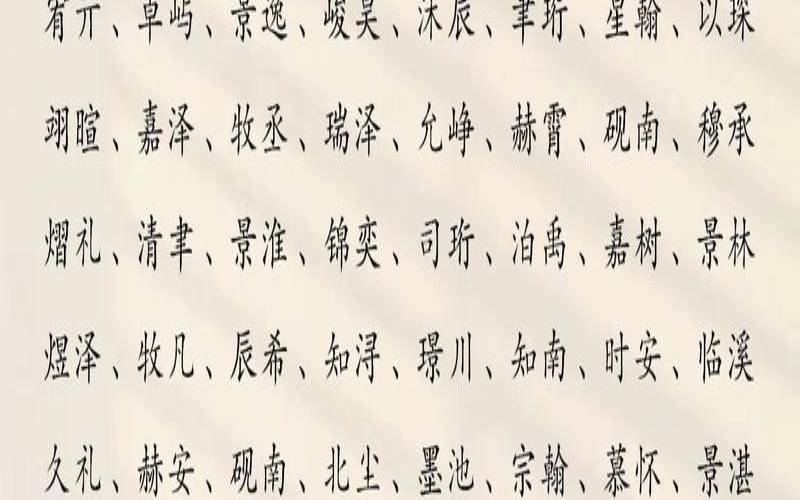 宥亓、卓屿、景逸、峻昊、沐辰、聿珩、星翰、以琛
翊暄、嘉泽、牧丞、瑞泽、允峥、赫霄、砚南、穆承
熠礼、清聿、景淮、锦奕、司珩、泊禹、嘉树、景林
煜泽、牧凡、辰希、知浔、璟川、知南、时安、临溪
久礼、赫安、砚南、北尘、墨池、宗翰、慕怀、景湛